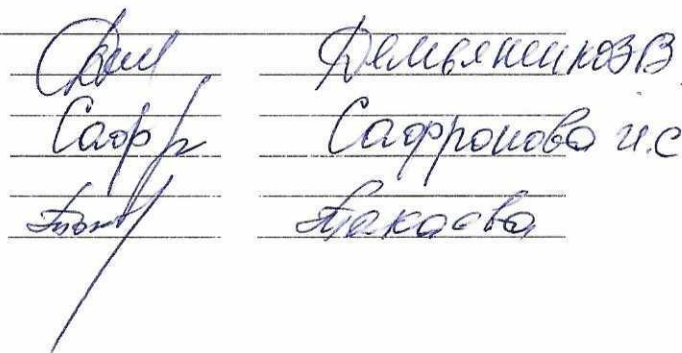 Демьяненко З.В
Сафр Сафронова И.С
Такаева